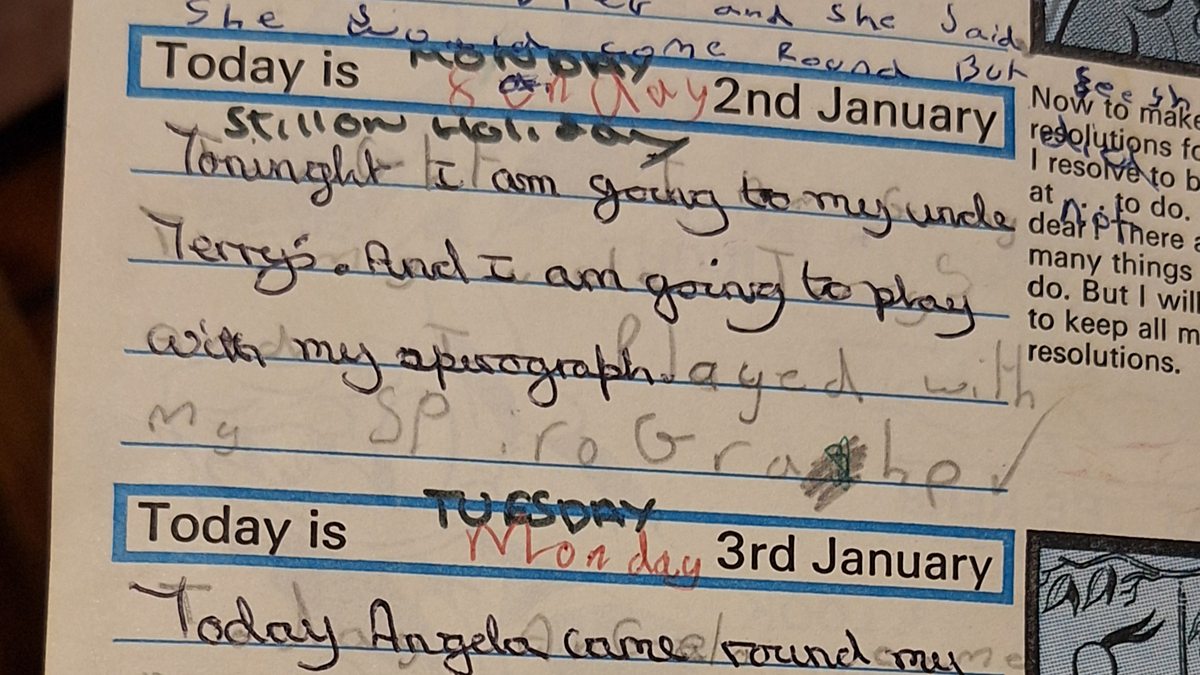 She and she said
come Round But
Today is MONDAY Sunday 2nd January
Still on Holiday
Toninght I am going to my uncle
Terry's. And I am going to play
with my spirograph. Played with
My SPiroGra hp
Today is TUESDAY Monday 3rd January
Today Angela came round my
Now to make
resolutions fo
I resolve to b
at . . . to do.
dear! There a
many things
do. But I will
to keep all m
resolutions.